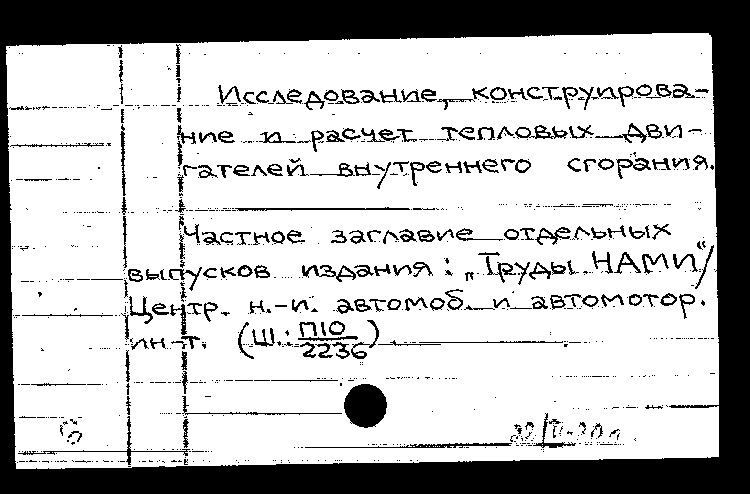 Исследование, конструирова-
ние и расчет тепловых дви-
гателей внутреннего сгорания.
Частное заглавие отдельных
выпусков издания: „Труды НАМИ“/
Центр. н.-и. автомоб. и автомотор.
ин-т. (Ш.: П10/2236).